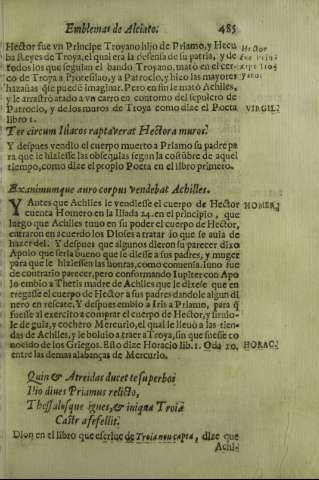 Emblemas de Alciato. 485
Hector fue vn Principe Troyano hijo de Priamo, y Hecu
ba Reyes de Troya, el qual era la defensa de su patria, y de
todos los que seguian el bando Troyano, matò en el cer-
co de Troya a Protesilao, y a Patroclo, y hizo las mayores
hazañas q̃ se puedẽ imaginar. Pero en fin le matò Achiles,
y le arrastrò atado a vn carro en contorno del sepulcro de
Patroclo, y de los muros de Troya como dize el Poeta
libro 1.
Hector
fue Prin
cipe Tro
yano.
VIRGIL.
Ter circum Iliacos raptaverat Hectora muros.
Y despues vendio el cuerpo muerto a Priamo su padre pa
ra que le hiziesse las obsequias segun la costũbre de aquel
tiempo, como dize el propio Poeta en el libro primero.
Exanimumque auro corpus vendebat Achilles.
Y Antes que Achiles le vendiesse el cuerpo de Hector
cuenta Homero en la Iliada 24. en el principio, que
luego que Achiles tuuo en su poder el cuerpo de Hector,
entraron en acuerdo los Dioses a tratar lo que se auia de
hazer del. Y despues que algunos dieron su parecer dixo
Apolo que seria bueno que le diesse a sus padres, y muger
para que le hiziessen las honras, como conuenia. Iuno fue
de contrario parecer, pero conformando Iupiter con Apo
lo embio a Thetis madre de Achiles que le dixese que en
tregasse el cuerpo de Hector a sus padres dandole algun di
nero en rescate. Y despues embio a Iris a Priamo, para q̃
fuesse al exercito a comprar el cuerpo de Hector, y siruio-
le de guia, y cochero Mercurio, el qual le lleuò a las tien-
das de Achiles, y le boluio a traer a Troya, sin que fuesse co
nocido de los Griegos. Esto dize Horacio lib. 1. Oda 10.
entre las demas alabanças de Mercurio.
HOMER.
HORAC.
Quin & Atreidas duce te superbos
Ilio diues Priamus relicto,
Thessalosque ignes, & iniqua Troiæ
Castr afefellit.
Dion en el libro que escriue de Troia non capta, dize que
Achi-